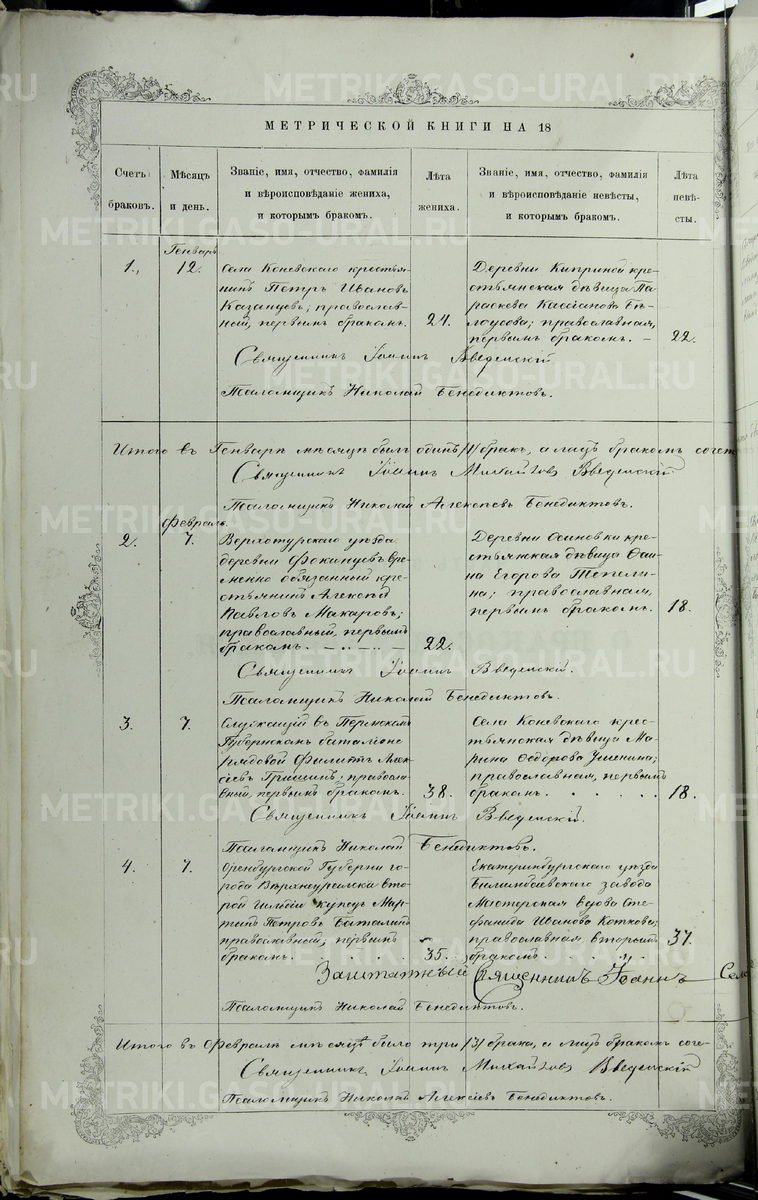 МЕТРИЧЕСКОЙ КНИГИ НА 18
Счетъ браковъ.
Мѣсяцъ и день.
Званіе, имя, отчество, фамилія
и вѣроисповѣданіе жениха,
и которымъ бракомъ.
Лѣта жениха.
Званіе, имя, отчество, фамилія
и вѣроисповѣданіе невѣсты,
и которымъ бракомъ.
Лѣта невѣсты.
Генварь
1.
12.
Села Коневскаго крестья-
нинъ Петръ Ивановъ
Казанцевъ; православ-
ный, первымъ бракомъ.
24.
Деревни Киприной кре-
стьянская дѣвица Па-
раскева Кассіанова Бѣ-
лоусова; православная,
первымъ бракомъ.
22.
Священникъ Іоаннъ Введенскій
Псаломщикъ Николай Бенедиктовъ.
Итого въ Генварѣ мѣсяцѣ былъ одинъ /1/ бракъ, а лицъ бракомъ сочет
Священникъ Іоаннъ Михайловъ Введенскій
Псаломщикъ Николай Алексѣевъ Бенедиктовъ.
Февраль.
2.
7.
Верхотурскаго уѣзда
деревни Фокинцевъ вре-
менно обязанный кре-
стьянинъ Алексѣй
Павловъ Макаровъ;
православный, первымъ
бракомъ.
22.
Деревни Осиновки кре-
стьянская дѣвица Ѳаи-
на Егорова Тепели-
на; православная,
первымъ бракомъ.
18.
Священникъ Іоаннъ Введенскій.
Псаломщикъ Николай Бенедиктовъ.
3.
7.
Служащій въ Пермскомъ
Губернскомъ баталіоне
рядовой Филиппъ Алек-
сѣевъ Гришинъ; правосла-
вный, первымъ бракомъ.
38.
Села Коневскаго крес-
тьянская дѣвица Ма-
рина Ѳедорова Ушенина;
православная, первымъ
бракомъ.
18.
Священникъ Іоаннъ Введенскій.
Псаломщикъ Николай Бенедиктовъ.
4.
7.
Оренбургской Губерни го-
рода Верхнеуральска вто-
рой гильдіи купецъ Мар-
тинъ Петровъ Баталинъ
православный; первымъ
бракомъ.
35.
Екатеринбургскаго уѣзда
Билимбаевскаго завода
Мастерская вдова Сте-
фанида Иванова Коткова;
православная вторымъ
бракомъ.
37.
Заштатный Священникъ Іоаннъ
Псаломщикъ Николай Бенедиктовъ.
Итого въ Февралѣ мѣсяцѣ было три /3/ брака, а лицъ бракомъ соче-
Священникъ Іоаннъ Михайловъ Введенскій
Псаломщикъ Николай Алексѣевъ Бенедиктовъ.
METRIKI.GASO-URAL.RU